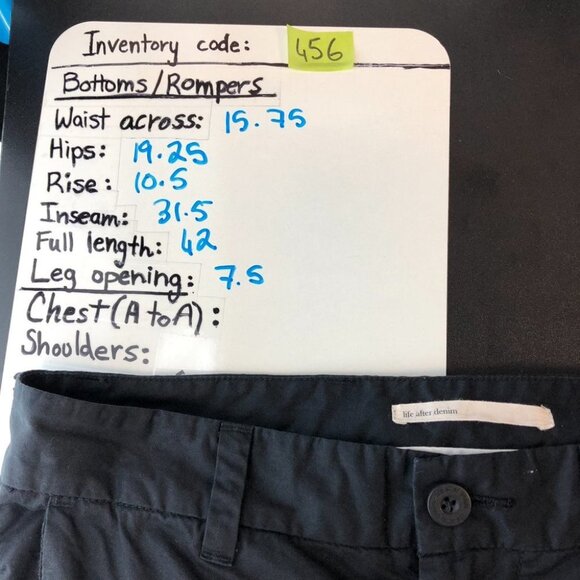 Inventory code: 456
Bottoms/Rompers
Waist across: 15.75
Hips: 19.25
Rise: 10.5
Inseam: 31.5
Full length: 42
Leg opening: 7.5
Chest (A to A):
Shoulders:
life after denim